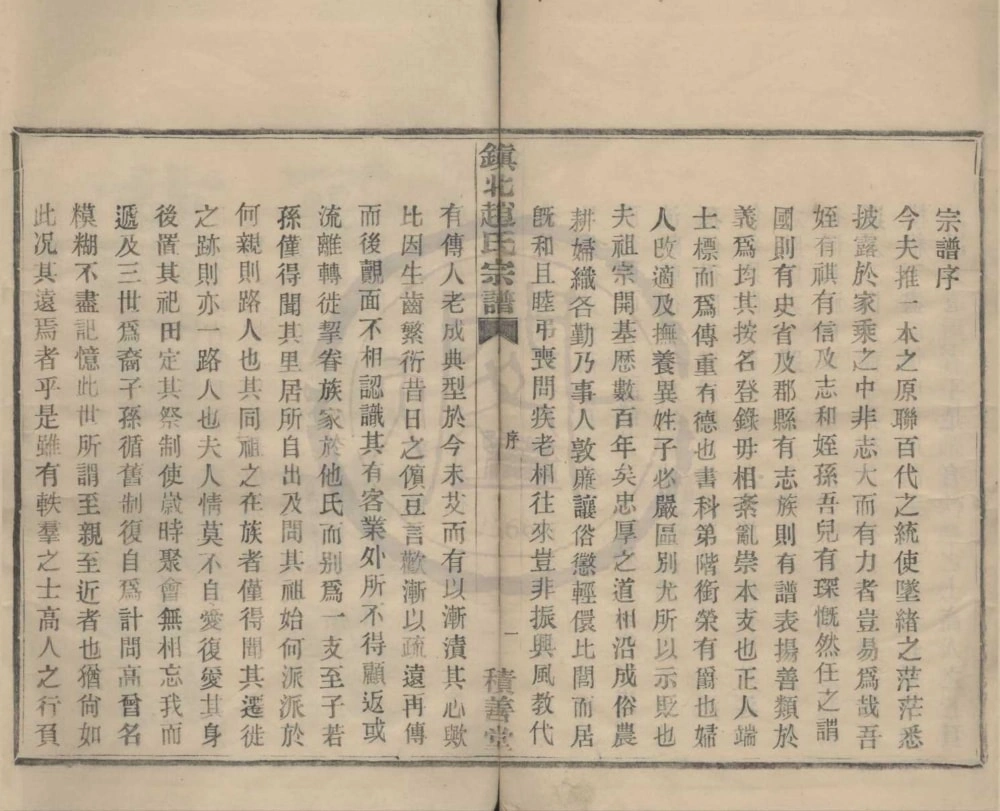 宗譜序
今夫推一本之原聯百代之統使墜緒之茫茫悉
披露於家乘之中非志大而有力者豈易爲哉吾
姪有祺有信及志和姪孫吾兒有琛慨然任之謂
國則有史省及郡縣有志族則有譜表揚善類於
義爲均其按名登錄毋相紊亂崇本支也正人端
士標而爲傳重有德也書科第階銜榮有爵也婦
人改適及撫養異姓子必嚴區別尤所以示貶也
夫祖宗開基歴數百年矣忠厚之道相沿成俗農
耕婦織各勤乃事人敦廉讓俗懲輕儇比閭而居
旣和且睦弔喪問疾老相往來豈非振興風教代
鎮北趙氏宗譜
序
一
積善堂
有傳人老成典型於今未艾而有以漸漬其心歟
比因生齒繁衍昔日之儐豆言歡漸以疏遠再傳
而後覿面不相認識其有客業外所不得顧返或
流離轉徙挈眷族家於他氏而別爲一支至子若
孫僅得聞其里居所自出及問其祖始何派派於
何親則路人也其同祖之在族者僅得聞其遷徙
之跡則亦一路人也夫人情莫不自愛復愛其身
後置其祀田定其祭制使歲時聚會無相忘我而
遞及三世爲裔子孫循舊制復自爲計問高曾名
糢糊不盡記憶此世所謂至親至近者也猶尙如
此况其遠焉者乎是雖有軼羣之士高人之行負